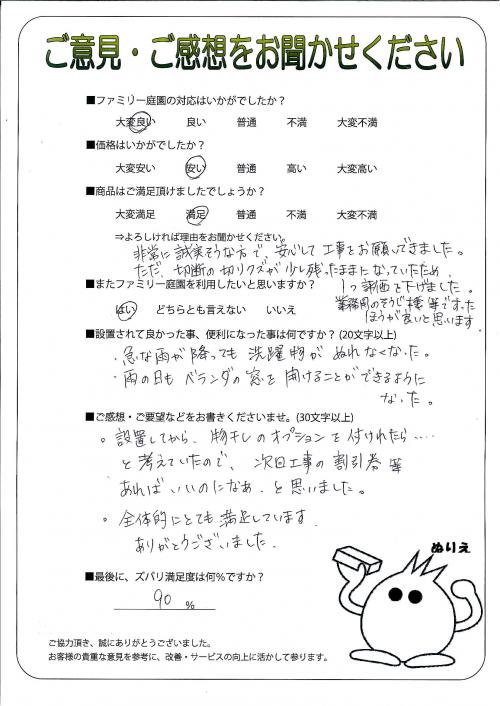 ご意見・ご感想をお聞かせください
■ファミリー庭園の対応はいかがでしたか？
大変良い 良い 普通 不満 大変不満
■価格はいかがでしたか？
大変安い 安い 普通 高い 大変高い
■商品はご満足頂けましたでしょうか？
大変満足 満足 普通 不満 大変不満
⇒よろしければ理由をお聞かせください。
非常に誠実そうな方で、安心して工事をお願いできました。
ただ、切断の切りクズが少し残ったままとなっていたため、
1つ評価を下げました。
■またファミリー庭園を利用したいと思いますか？
業務用のそうじ機等で吸った
ほうが良いと思います
はい どちらとも言えない いいえ
■設置されて良かった事、便利になった事は何ですか？(20文字以上)
・急な雨が降っても洗濯物がぬれなくなった。
・雨の日もベランダの窓を開けることができるように
なった。
■ご感想・ご要望などをお書きくださいませ。(30文字以上)
。設置してから、物干しのオプションを付けれたら……
と考えていたので、次回工事の割引券等
あればいいのになあ、と思いました。
。全体的にとても満足しています。
ありがとうございました。
ぬりえ
■最後に、ズバリ満足度は何％ですか？
90 %
ご協力頂き、誠にありがとうございました。
お客様の貴重な意見を参考に、改善・サービスの向上に活かして参ります。